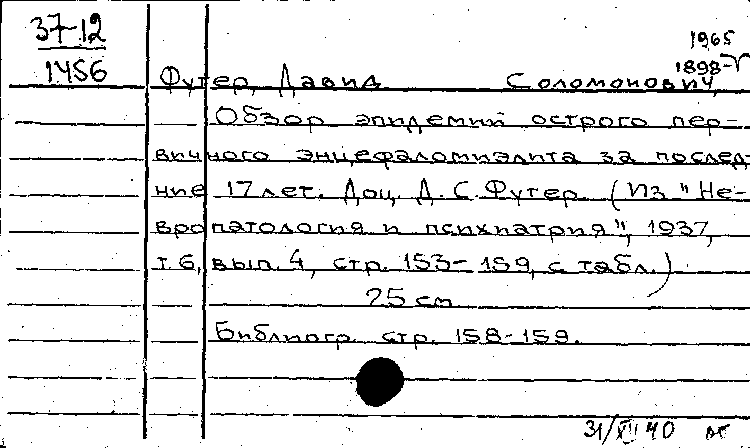 37-12
1456
1965
1898-
Футер, Давид Соломонович,
Обзор эпидемий острого пер-
вичного энцефаломиэлита за послед-
ние 17 лет. Доц. Д. С. Футер. (Из "Не-
вропатология и психиатрия", 1937,
т. 6, вып. 4, стр. 153-159, с табл.)
25 см
Библиогр. стр. 158-159.
31/XII 40